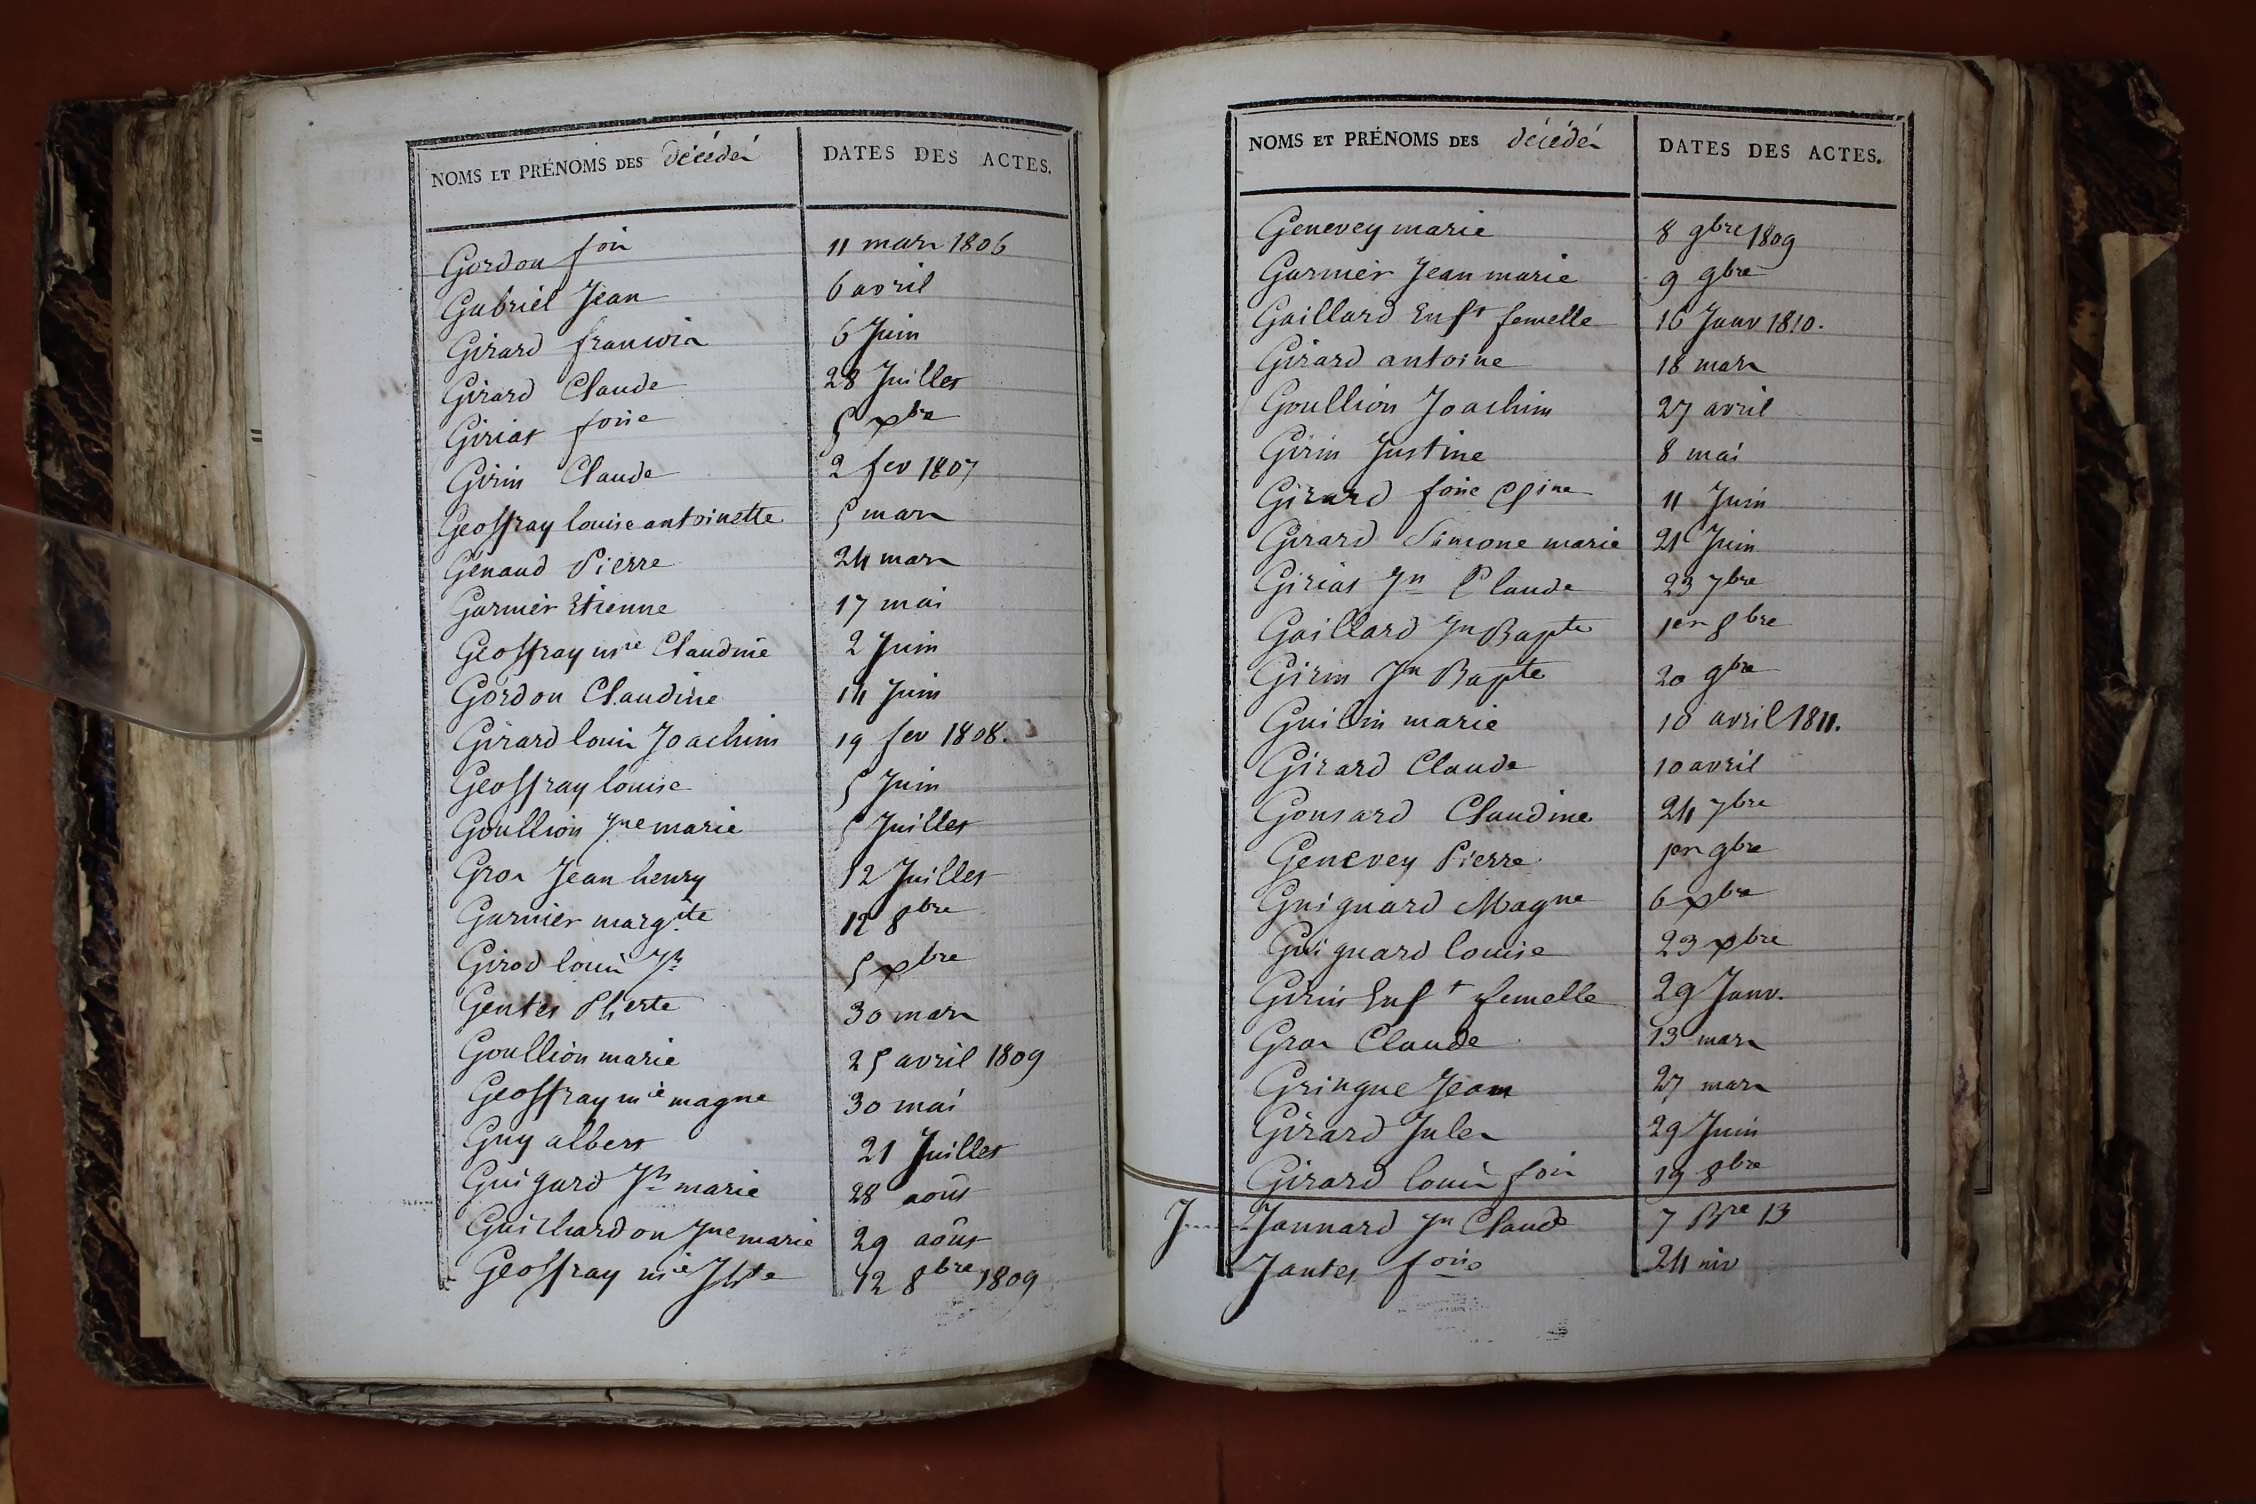 NOMS ET PRÉNOMS DES décédés DATES DES ACTES.
Gordon fois 11 mars 1806
Gabriel Jean 6 avril
Girard francois 6 Juin
Girard Claude 28 Juillet
Giriat foise 5 xbre
Girin Claude 2 fev 1807
Geoffray louise antoinette 5 mars
Genaud Pierre 24 mars
Garnier Etienne 17 mai
Geoffray mie Claudine 2 Juin
Gordon Claudine 14 Juin
Girard louis Joachim 19 fev 1808.
Geoffray louise 5 Juin
Goullion Jne marie 5 Juillet
Gros Jean henry 12 Juillet
Garnier margte 12 8bre
Girod louis Jh 5 xbre
Gentet Pherte 30 mars
Goullion marie 25 avril 1809
Geoffray mie magne 30 mai
Guy albert 21 Juillet
Guigard Jh marie 28 août
Guichardon Jne marie 29 août
Geoffray mie 12 8bre 1809
NOMS ET PRÉNOMS DES décédés DATES DES ACTES.
Genevey marie 8 9bre 1809
Garnier Jean marie 9 9bre
Gaillard Enft femelle 16 Janv 1810.
Girard antoine 18 mars
Goullion Joachim 27 avril
Girin Justine 8 mai
Girard foise Cine 11 Juin
Girard Simone marie 21 Juin
Giriat Jn Claude 23 7bre
Gaillard Jn Bapte 1er 8bre
Girin Jn Bapte 20 9bre
Guillin marie 10 avril 1811.
Girard Claude 10 avril
Gonsard Claudine 24 7bre
Genevey Pierre 1er 9bre
Guignard Magne 6 xbre
Guignard louise 23 xbre
Girin Enft femelle 29 Janv.
Gros Claude 13 mars
Gringue Jean 27 mars
Girard Jules 29 Juin
Girard louis fois 19 8bre
J Jannard Jn Claude 7 Bre 13
Jantet foise 24 niv